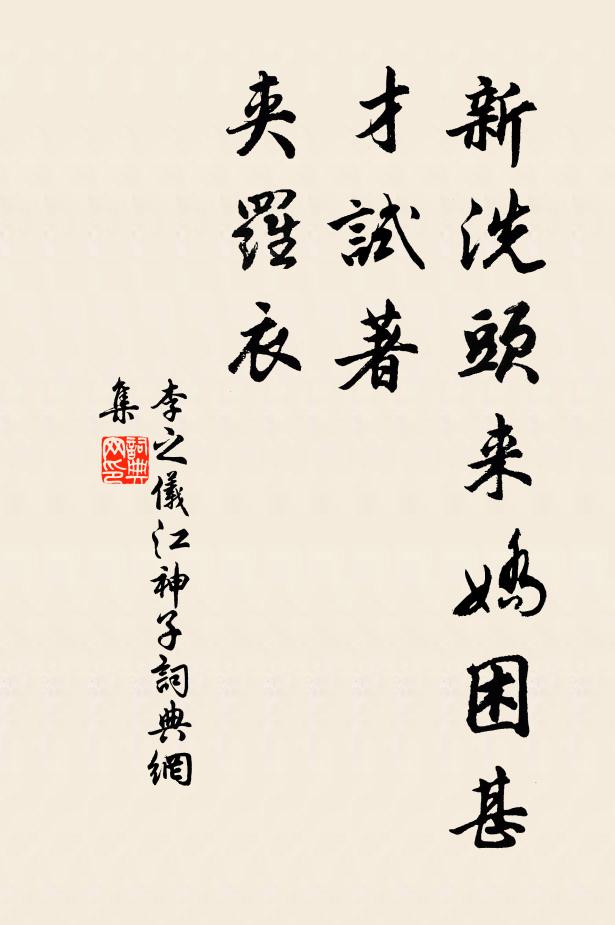 新洗頭来嬌困甚
才試著
夹羅衣
李之儀江神子詞典網
集
詞典
网印